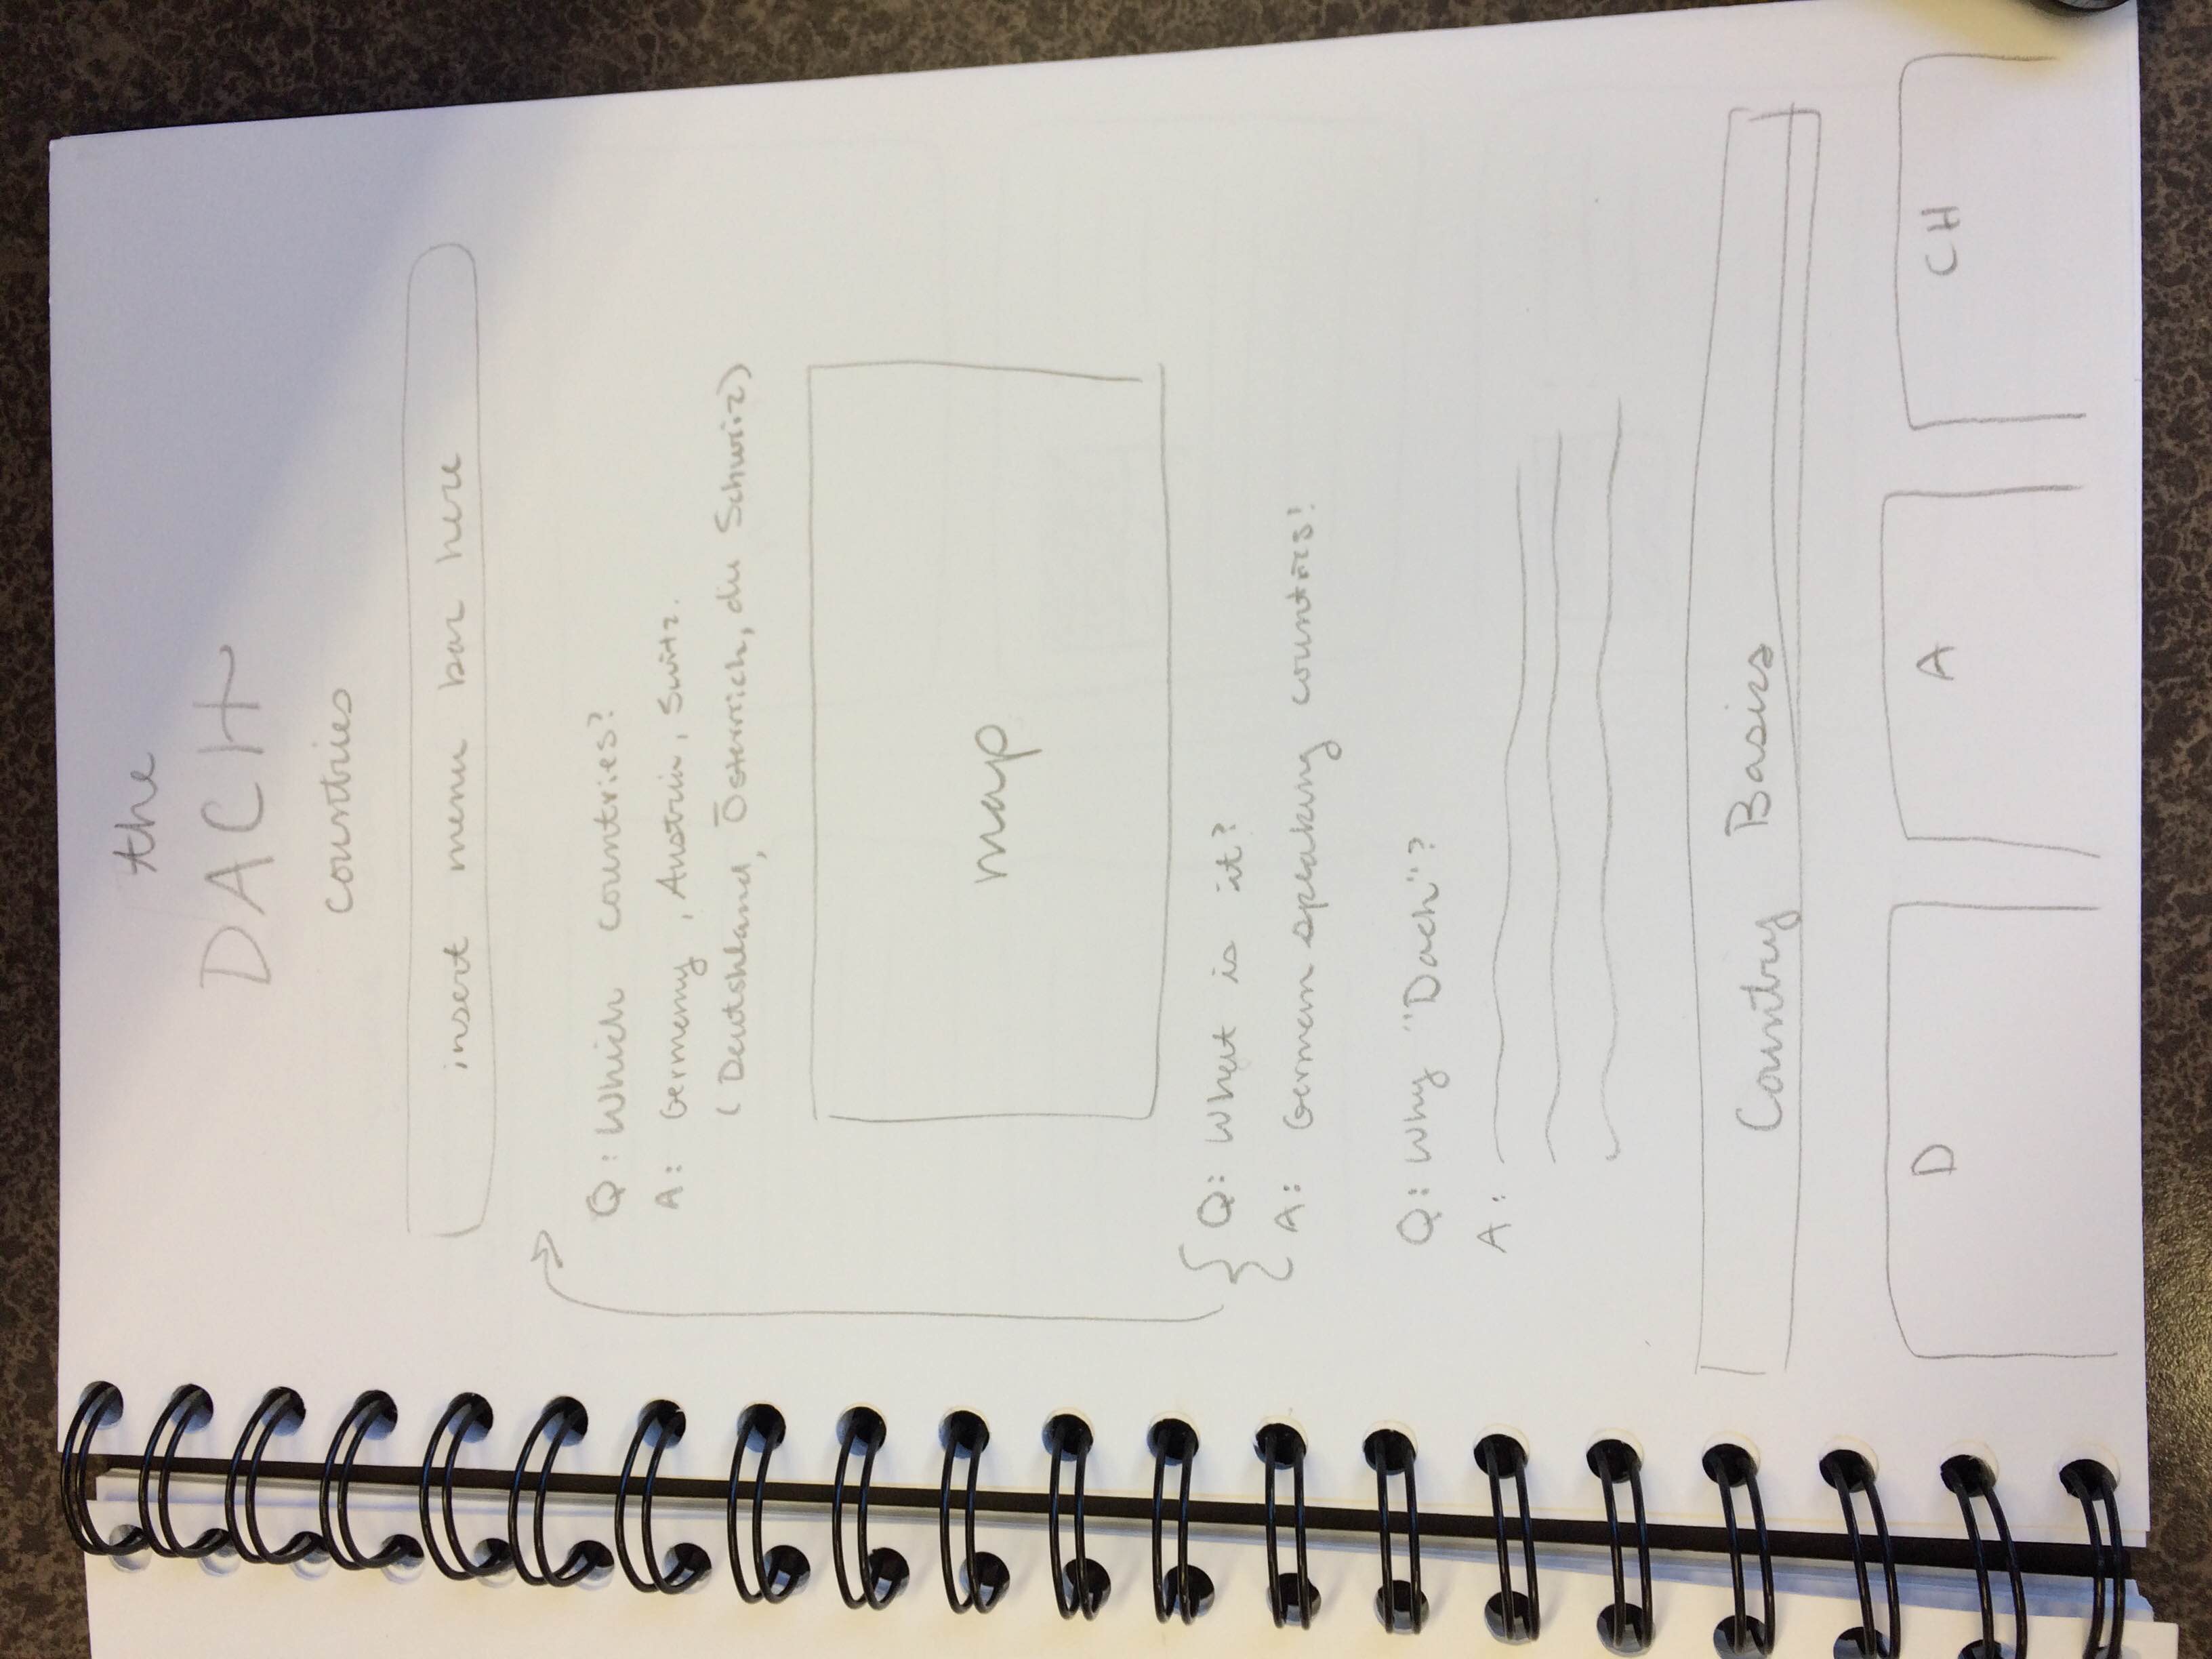 the
DACH
countries
insert menu bar here
Q: Which countries?
A: Germany, Austria, Switz.
(Deutshland, Österrich, die Schweiz)
map
Q: What is it?
A: German speaking countries!
Q: Why "Dach"?
A:
Country Basics
D A CH